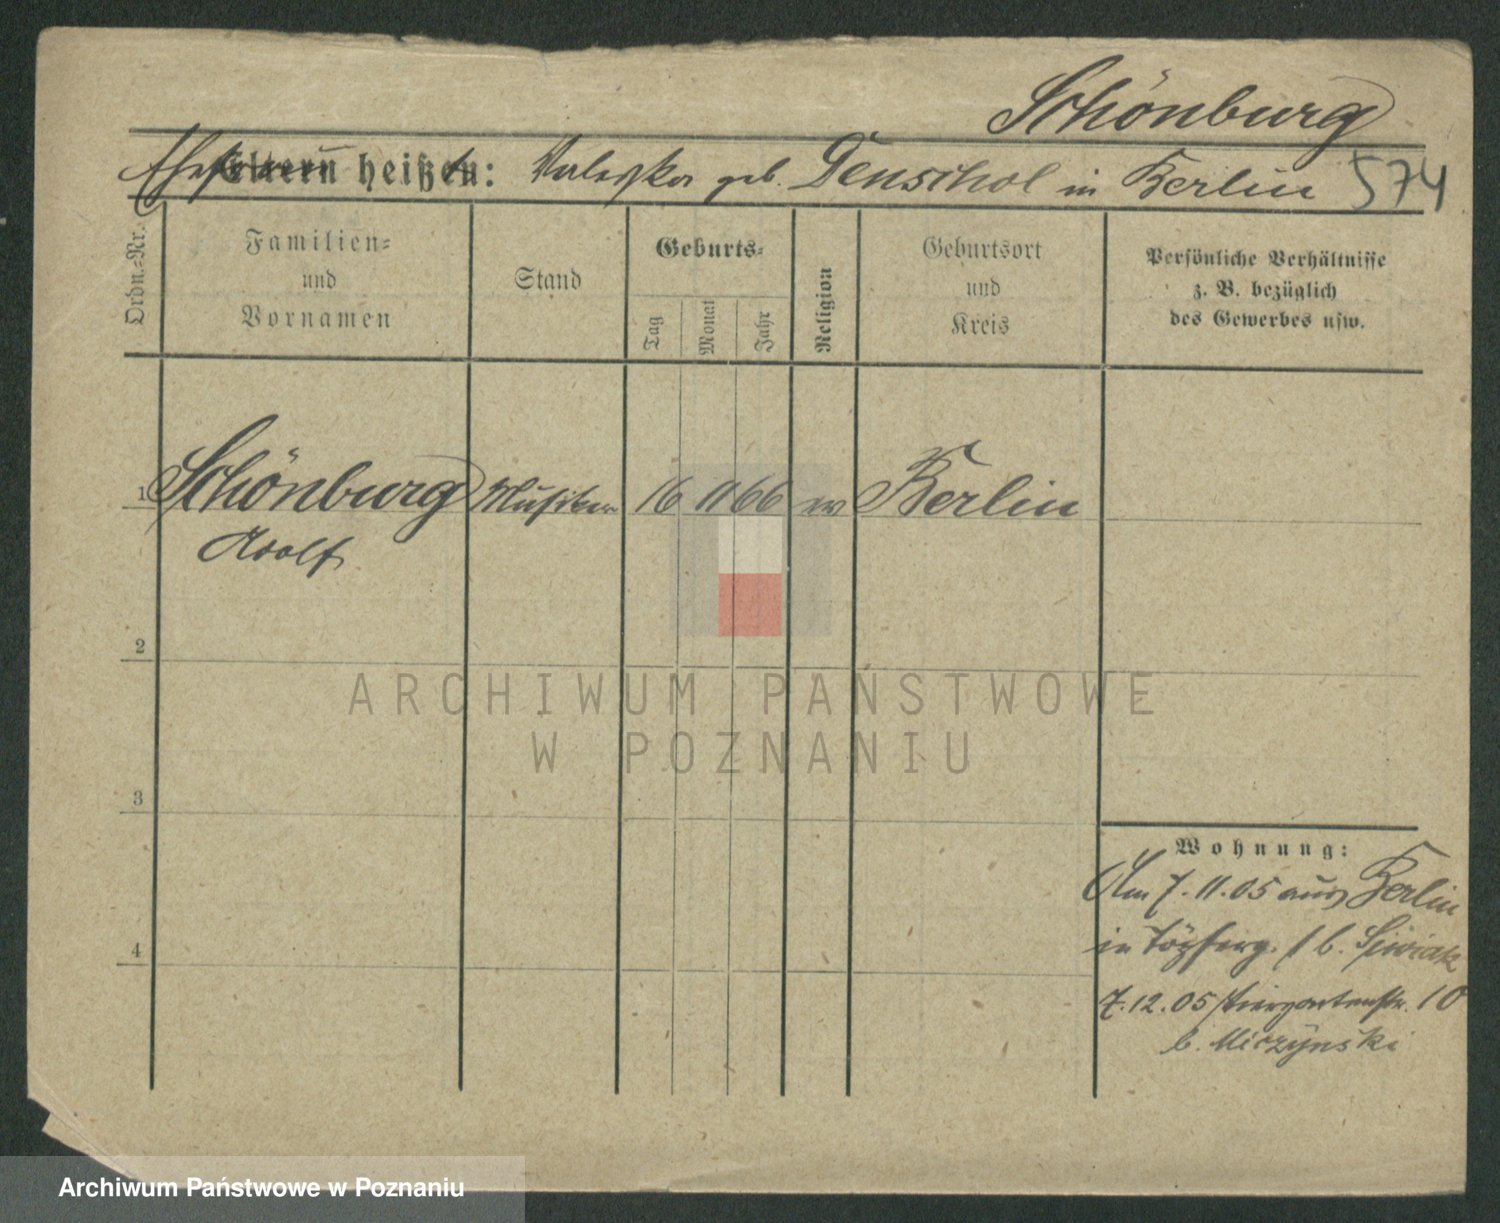 Schönburg
Ehefrau heißt: Valeska geb. Denschol in Berlin 574
Eltern heißen:
Ordn.-Nr.
Familien-
und
Vornamen
Stand
Geburts-
Tag
Monat
Jahr
Religion
Geburtsort
und
Kreis
Persönliche Verhältnisse
z. B. bezüglich
des Gewerbes usw.
1 Schönburg Musiker 16 11 66 ev Berlin
Adolf
2
3
4
Wohnung:
Am 7.11.05 aus Berlin
in Töpferg. 1 b.
7.12.05 Tiergartenstr. 10
b. Miczynski
ARCHIWUM PAŃSTWOWE
W POZNANIU
Archiwum Państwowe w Poznaniu